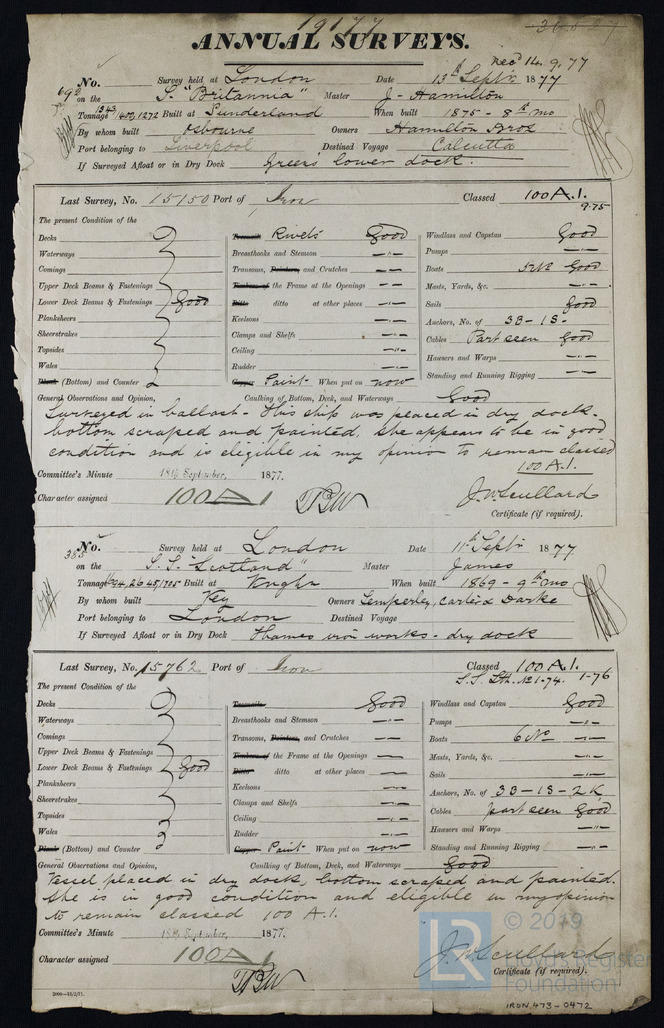 19177
ANNUAL SURVEYS.
Recd 14.9.77
No. 692 Survey held at London Date 13th Septr 1877
on the S. "Britannia" Master J. Hamilton
Tonnage 1272 Built at Sunderland When built 1875 - 8th mo
By whom built Osbourne Owners Hamilton Bros
Port belonging to Liverpool Destined Voyage Calcutta
If Surveyed Afloat or in Dry Dock Greens lower dock.
Last Survey, No. 15150 Port of Iron Classed 100 A.1.
9.75
The present Condition of the
Decks
Waterways
Comings
Upper Deck Beams & Fastenings
Lower Deck Beams & Fastenings Good
Planksheers
Sheerstrakes
Topsides
Wales
(Bottom) and Counter
Rivets Good
Breasthooks and Stemson -"-
Transoms, Pointers, and Crutches -"-
Timbers of the Frame at the Openings -"-
Ditto ditto at other places -"-
Keelsons -"-
Clamps and Shelfs -"-
Ceiling -"-
Rudder -"-
Copper Paint When put on now
Caulking of Bottom, Deck, and Waterways Good
Windlass and Capstan Good
Pumps -"-
Boats Good
Masts, Yards, &c. -"-
Sails Good
Anchors, No. of 3B - 1S -
Cables Part seen Good
Hawsers and Warps -"-
Standing and Running Rigging -"-
General Observations and Opinion,
Surveyed in ballast. This ship was placed in dry dock.
bottom scraped and painted, she appears to be in good
condition and is eligible in my opinion to remain classed
100 A.1.
Committee's Minute 18th September, 1877.
Character assigned 100 A 1
J. W. Scullard
Certificate (if required).
No. 385 Survey held at London Date 11th Septr 1877
on the S.S. "Scotland" Master James
Tonnage Built at Kinghn When built 1869 - 9th mo
By whom built Key Owners Temperley, Carter & Darke
Port belonging to London Destined Voyage
If Surveyed Afloat or in Dry Dock Thames iron works - dry dock
Last Survey, No. 15762 Port of Iron Classed 100 A.1.
S.S. Lth. No1-74. 1-76
The present Condition of the
Decks
Waterways
Comings
Upper Deck Beams & Fastenings
Lower Deck Beams & Fastenings Good
Planksheers
Sheerstrakes
Topsides
Wales
(Bottom) and Counter
Treenails Good
Breasthooks and Stemson -"-
Transoms, Pointers, and Crutches -"-
Timbers of the Frame at the Openings -"-
Ditto ditto at other places -"-
Keelsons -"-
Clamps and Shelfs -"-
Ceiling -"-
Rudder -"-
Copper Paint When put on now
Caulking of Bottom, Deck, and Waterways Good
Windlass and Capstan Good
Pumps -"-
Boats 6 No -"-
Masts, Yards, &c. -"-
Sails -"-
Anchors, No. of 3B - 1S - 2K
Cables part seen Good
Hawsers and Warps -"-
Standing and Running Rigging -"-
General Observations and Opinion,
Vessel placed in dry dock, bottom scraped and painted.
She is in good condition and eligible in my opinion
to remain classed 100 A.1.
Committee's Minute 18th September, 1877.
Character assigned 100 A 1
J. W. Scullard
Certificate (if required).
LR © 2019
Lloyd's Register
Foundation
IRON 473-0472